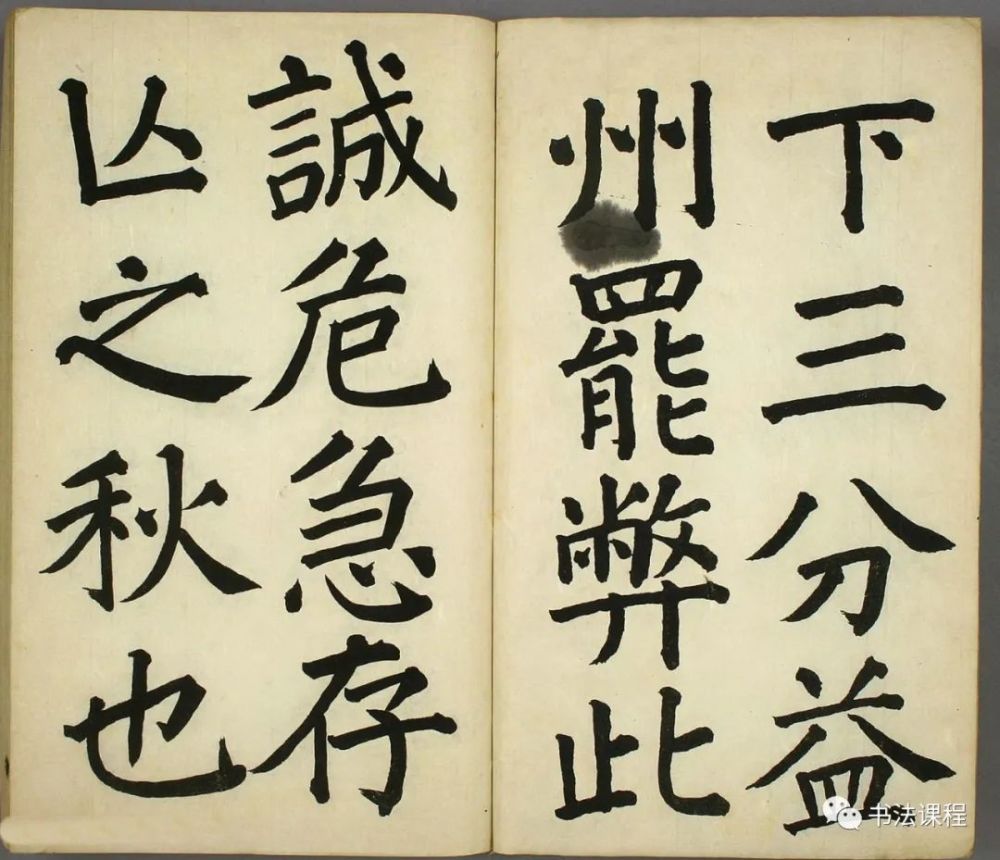 下三分益
州罷弊此
誠危急存
亾之秋也
书法课程